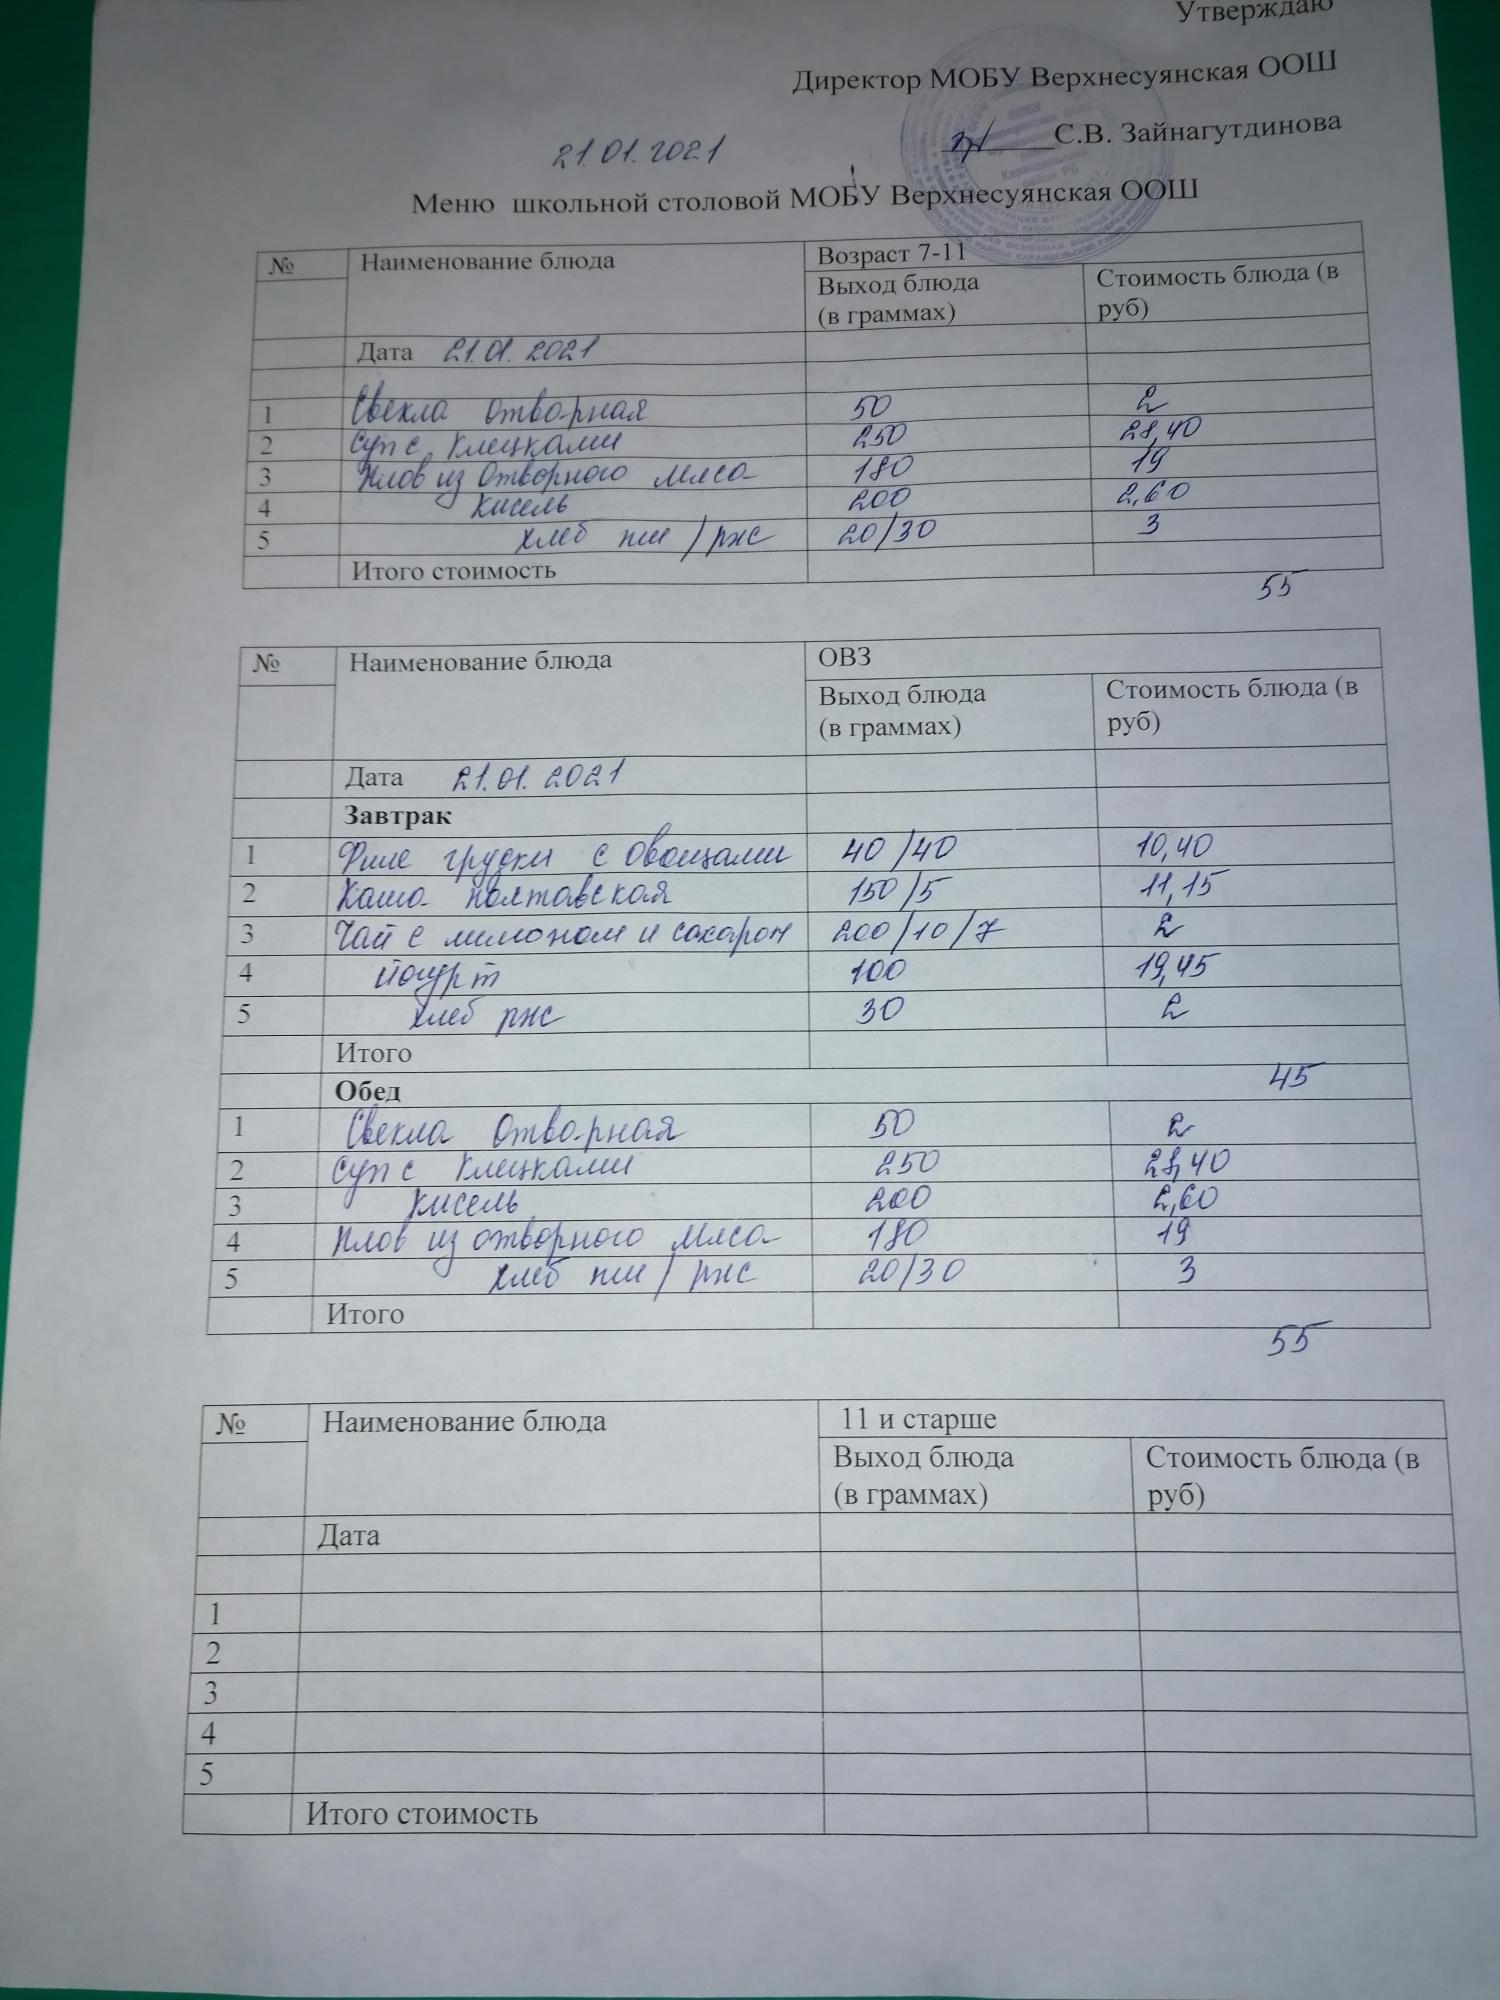 Утверждаю
Директор МОБУ Верхнесуянская ООШ
С.В. Зайнагутдинова
21.01.2021
Меню школьной столовой МОБУ Верхнесуянская ООШ
№ Наименование блюда Возраст 7-11
Выход блюда (в граммах) Стоимость блюда (в руб)
Дата 21.01.2021
1 Свекла отворная 50 2
2 Суп с клецками 250 28,40
3 Плов из отворного мяса 180 19
4 Кисель 200 2,60
5 хлеб пш/ржс 20/30 3
Итого стоимость
55
№ Наименование блюда ОВЗ
Выход блюда (в граммах) Стоимость блюда (в руб)
Дата 21.01.2021
Завтрак
1 Филе грудки с овощами 40/40 10,40
2 Каша полтавская 150/5 11,15
3 Чай с лимоном и сахаром 200/10/7 2
4 йогурт 100 19,45
5 хлеб ржс 30 2
Итого
Обед 45
1 Свекла отворная 50 2
2 Суп с клецками 250 28,40
3 Кисель 200 2,60
4 Плов из отворного мяса 180 19
5 хлеб пш/ржс 20/30 3
Итого
55
№ Наименование блюда 11 и старше
Выход блюда (в граммах) Стоимость блюда (в руб)
Дата
1
2
3
4
5
Итого стоимость